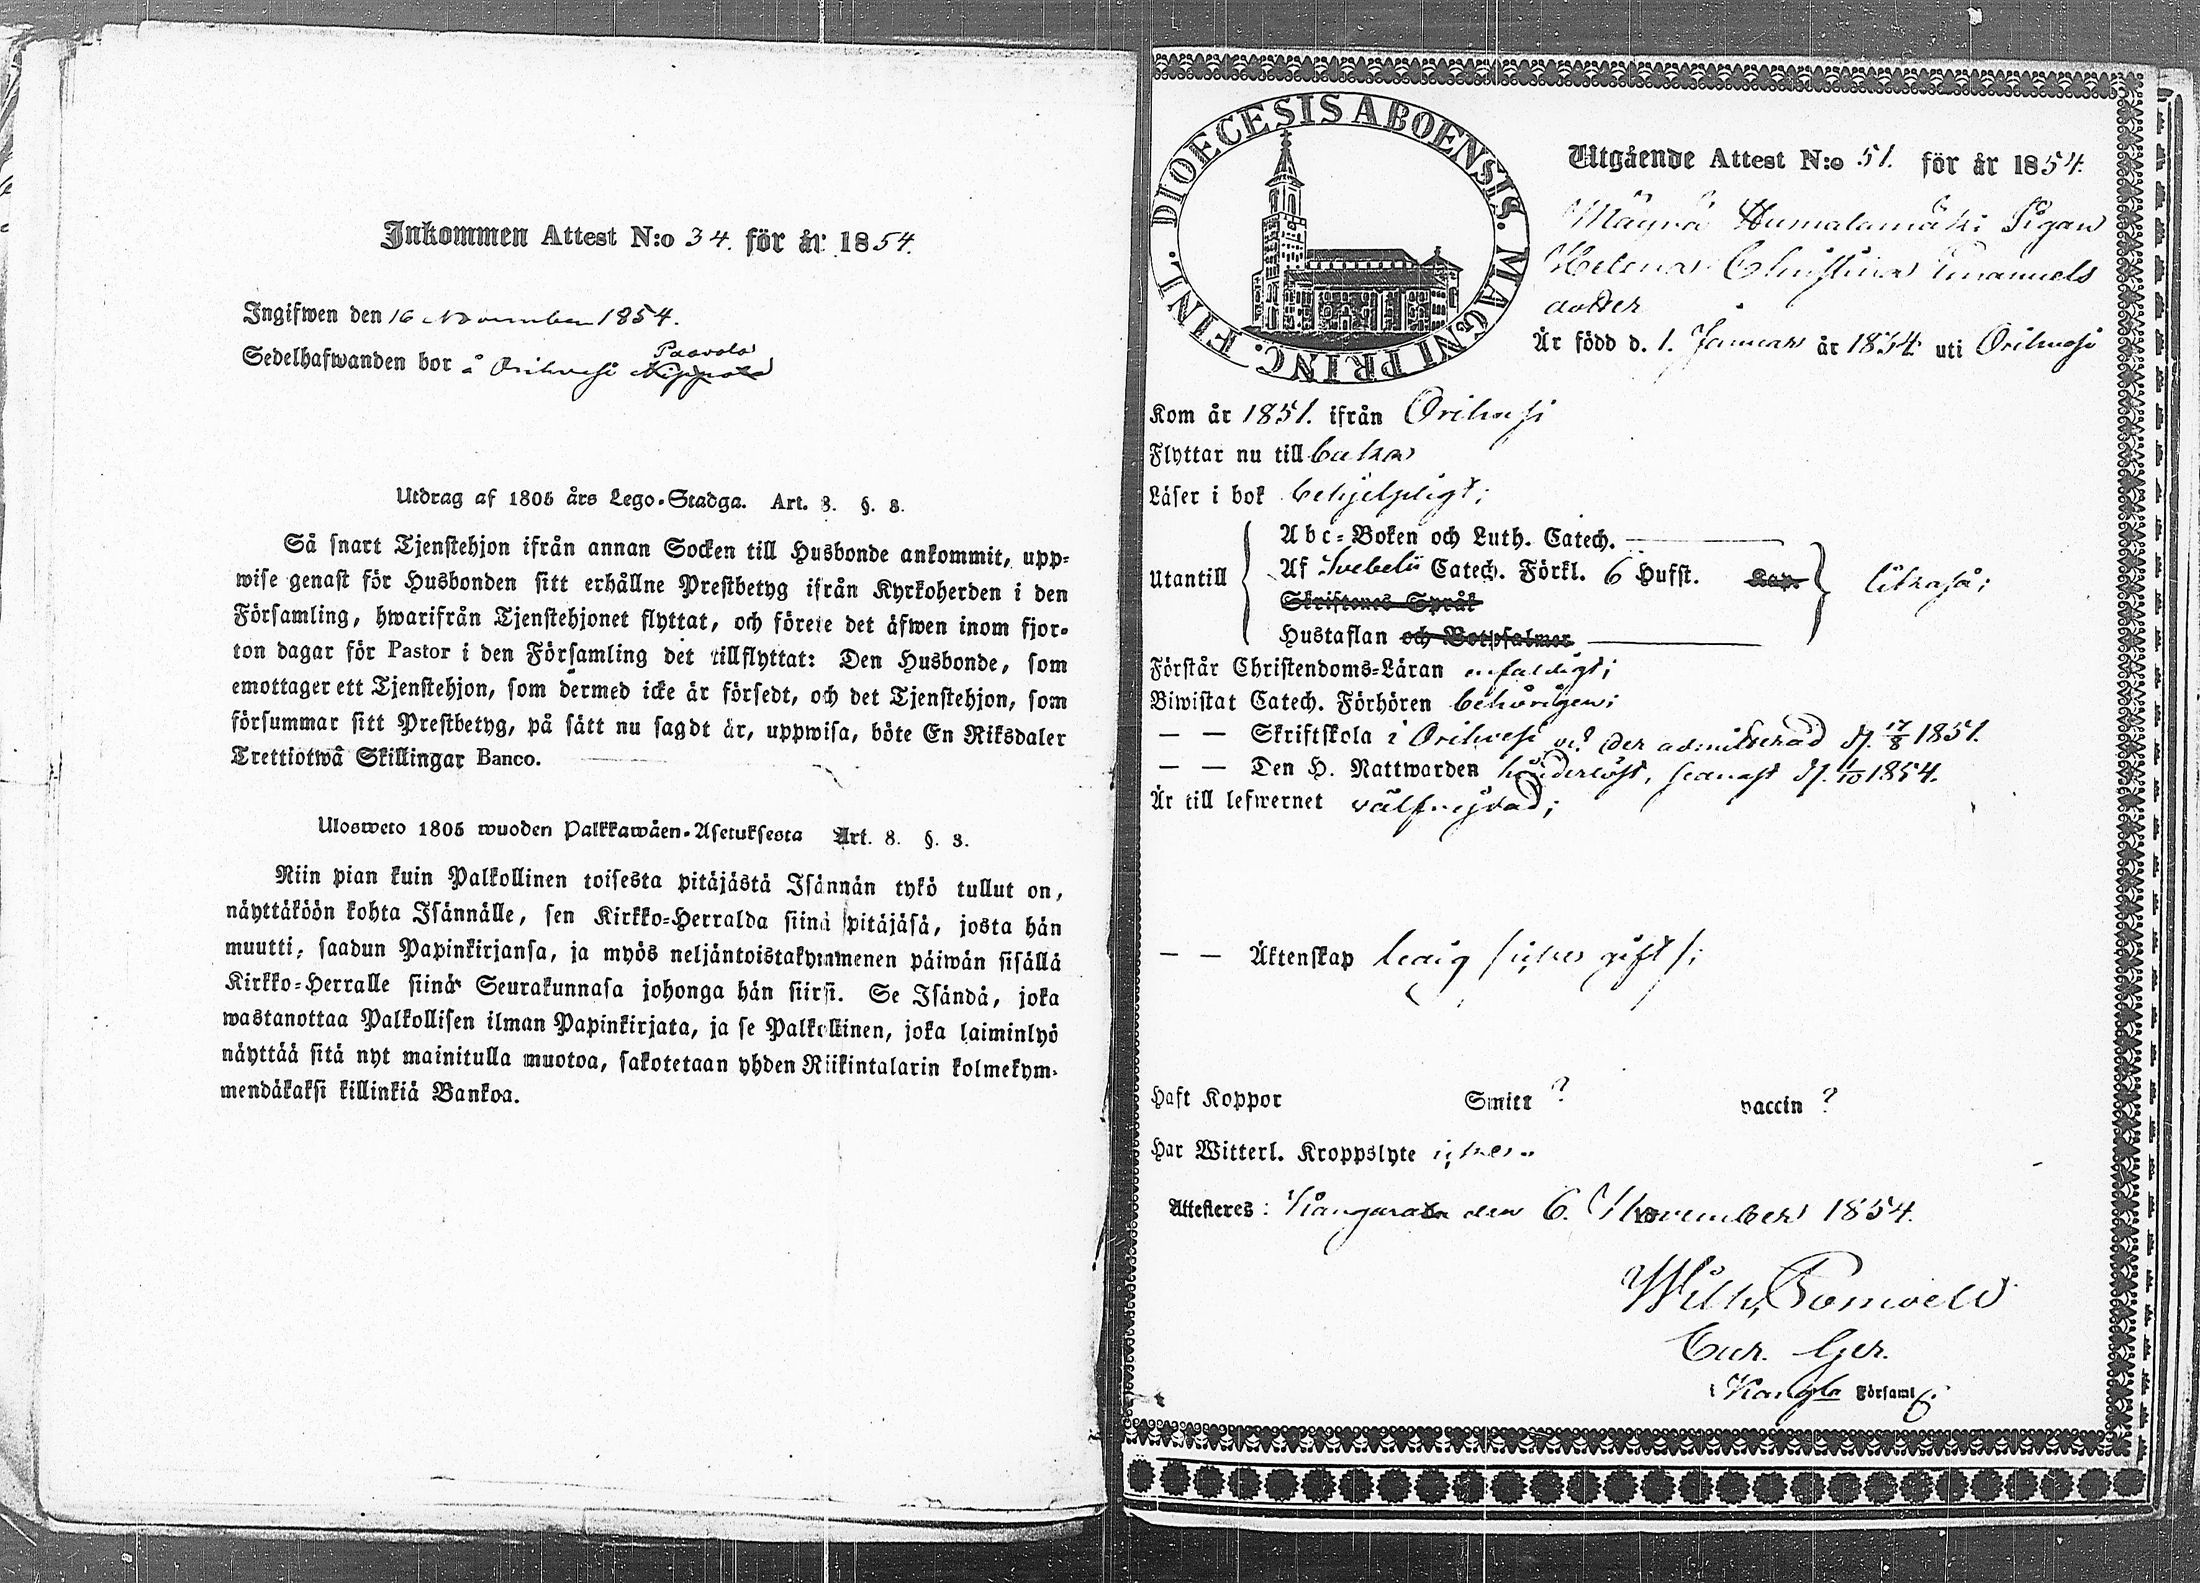 Inkommen Attest N:o 34. för år 1854.
Ingifwen den 16 November 1854.
Paavola
Sedelhafwanden bor å Orihvesi
Utdrag af 1805 års Lego-Stadga. Art. 8. §. 3.
Så snart Tjenstehjon ifrån annan Socken till Husbonde ankommit, upp-
wise genast för Husbonden sitt erhållne Prestbetyg ifrån Kyrkoherden i den
Församling, hwarifrån Tjenstehjonet flyttat, och förete det äfwen inom fjor-
ton dagar för Pastor i den Församling det tillflyttat: Den Husbonde, som
emottager ett Tjenstehjon, som dermed icke är försedt, och det Tjenstehjon, som
försummar sitt Prestbetyg, på sätt nu sagdt är, uppwisa, böte En Riksdaler
Trettiotwå Skillingar Banco.
Ulosweto 1805 wuoden Palkkawäen-Asetuksesta Art. 8. §. 3.
Niin pian kuin Palkollinen toisesta pitäjästä Isännän tykö tullut on,
näyttäköön kohta Isännälle, sen Kirkko-Herralda siinä pitäjäsä, josta hän
muutti, saadun Papinkirjansa, ja myös neljäntoistakymmenen päiwän sisällä
Kirkko-Herralle siinä Seurakunnasa johonga hän siirsi. Se Isändä, joka
wastanottaa Palkollisen ilman Papinkirjata, ja se Palkollinen, joka laiminlyö
näyttää sitä nyt mainitulla muotoa, sakotetaan yhden Riikintalarin kolmekym-
mendäkaksi killinkiä Bankoa.
DIOECESIS ABOENSIS. MAGNI PRINC. FINL.
Utgående Attest N:o 51. för år 1854.
Mäyrä Humalamäki Pigan
Helena Christina Emanuels
dotter
Är född d. 1. Januari år 1834 uti Orihvesi
Kom år 1851. ifrån Orihvesi
Flyttar nu tillbaka
Läser i bok behjelpligt;
Utantill
Abc-Boken och Luth. Catech.
Af Svebelii Catech. Förkl. 6 Hufst. Kap.
Skriftenes Språk
Hustaflan och Botpsalmer
likaså;
Förstår Christendoms-Läran enfaldigt;
Biwistat Catech. Förhören behörigen;
— — Skriftskola i Orihvesi och der admitterad d. 17/8 1851.
— — Den H. Nattwarden hinderlöst, senast d. 1/10 1854.
Är till lefwernet välfrejdad;
— — Äktenskap ledig /icke gift/;
Haft Koppor Smitt ? vaccin ?
Har Witterl. Kroppslyte icke.
Attesteres: Kangasala den 6. November 1854.
Wilh.
Cur. Ger.
i Kangla Församl